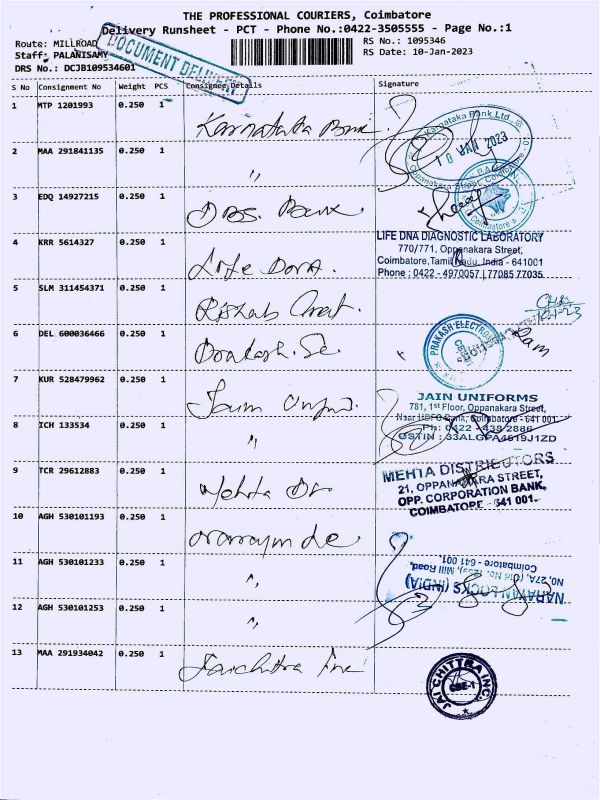 THE PROFESSIONAL COURIERS, Coimbatore
Delivery Runsheet - PCT - Phone No.:0422-3505555 - Page No.:1
Route: MILLROAD
RS No.: 1095346
Staff: PALANISAMY
RS Date: 10-Jan-2023
DRS No.: DCJB109534601
DOCUMENT DELIVERY
S No Consignment No Weight PCS Consignee Details Signature
1 MTP 1201993 0.250 1 Karnataka Bank
Karnataka Bank Ltd.,
10 JAN 2023
Oppanakara Street, Coimbatore
2 MAA 291841135 0.250 1 "
3 EDQ 14927215 0.250 1 DBS. Bank
Coimbatore
4 KRR 5614327 0.250 1 Life
LIFE DNA DIAGNOSTIC LABORATORY
770/771, Oppanakara Street,
Coimbatore,Tamil Nadu, India - 641001
Phone : 0422 - 4970057 | 77085 77035
5 SLM 311454371 0.250 1 Rishab
6 DEL 600036466 0.250 1
PRAKASH ELECTRONICS
Ram
7 KUR 528479962 0.250 1 Jain
JAIN UNIFORMS
781, 1st Floor, Oppanakara Street,
Near HDFC Bank, Coimbatore - 641 001.
Ph: 0422 - 438 2886
GSTIN : 33ALGPA4519J1ZD
8 ICH 133534 0.250 1 "
9 TCR 29612883 0.250 1 Mehta
MEHTA DISTRIBUTORS
21, OPPANAKARA STREET,
OPP. CORPORATION BANK,
COIMBATORE - 641 001.
10 AGH 530101193 0.250 1
11 AGH 530101233 0.250 1 "
NARAYAN LOCKS (INDIA)
NO.27A, (Old No. 125), Mill Road,
Coimbatore - 641 001.
12 AGH 530101253 0.250 1 "
13 MAA 291934042 0.250 1 Jaichitra Inc
JAICHITTRA INC.
CBE-1